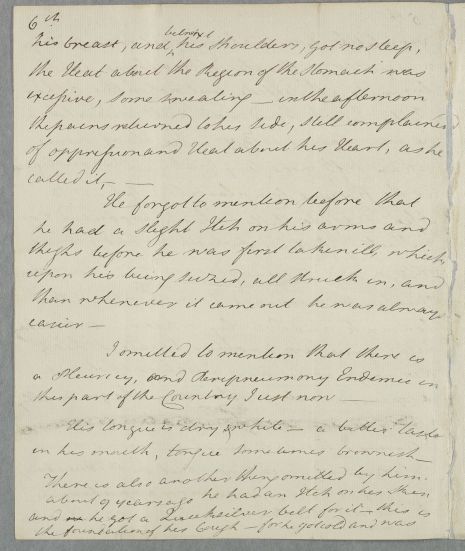 6th
betwixt
his breast, and his shoulders, got no sleep,
the Heat about the Region of the Stomach was
excessive, some sweating — in the afternoon
the pains returned to his side, still complained
of oppression and Heat about his Heart, as he
called it, —
He forgot to mention before that
he had a slight Itch on his arms and
thighs before he was first taken ill, which
upon his being seized, all struck in, and
than whenever it came out he was always
easier —
I omitted to mention that there is
a Pleurisy, and Peripneumony Endemic in
this part of the Country Just now —
His tongue is dry & white — a bitter taste
in his mouth, tongue some times brownish —
There is also another thing omitted by him.
about 9 years ago he had an Itch on his skin
and he got a Quicksilver belt for it — this is
the foundation of his Cough — for he got cold and was